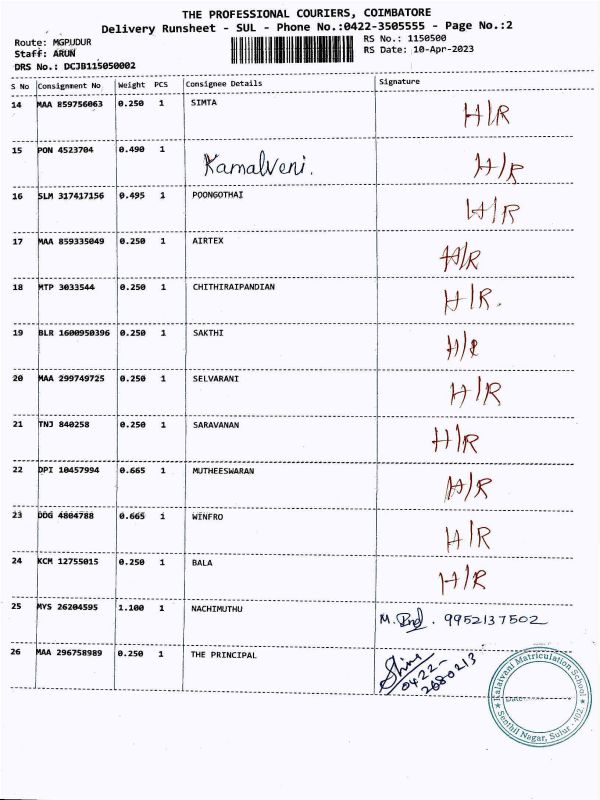 THE PROFESSIONAL COURIERS, COIMBATORE
Delivery Runsheet - SUL - Phone No.:0422-3505555 - Page No.:2
Route: MGPUDUR
Staff: ARUN
DRS No.: DCJB115050002
RS No.: 1150500
RS Date: 10-Apr-2023
S No Consignment No Weight PCS Consignee Details Signature
14 MAA 859756063 0.250 1 SIMTA H/R
15 PON 4523704 0.490 1 Kamalveni. H/R
16 SLM 317417156 0.495 1 POONGOTHAI H/R
17 MAA 859335049 0.250 1 AIRTEX H/R
18 MTP 3033544 0.250 1 CHITHIRAIPANDIAN H/R.
19 BLR 1600950396 0.250 1 SAKTHI H/R
20 MAA 299749725 0.250 1 SELVARANI H/R
21 TNJ 840258 0.250 1 SARAVANAN H/R
22 DPI 10457994 0.665 1 MUTHEESWARAN H/R
23 DDG 4804788 0.665 1 WINFRO H/R
24 KCM 12755015 0.250 1 BALA H/R
25 MYS 26204595 1.100 1 NACHIMUTHU M. 9952137502
26 MAA 296758989 0.250 1 THE PRINCIPAL
0422-
2680213
Kalaivani Matriculation School
Date
Senthil Nagar, Sulur - 402.